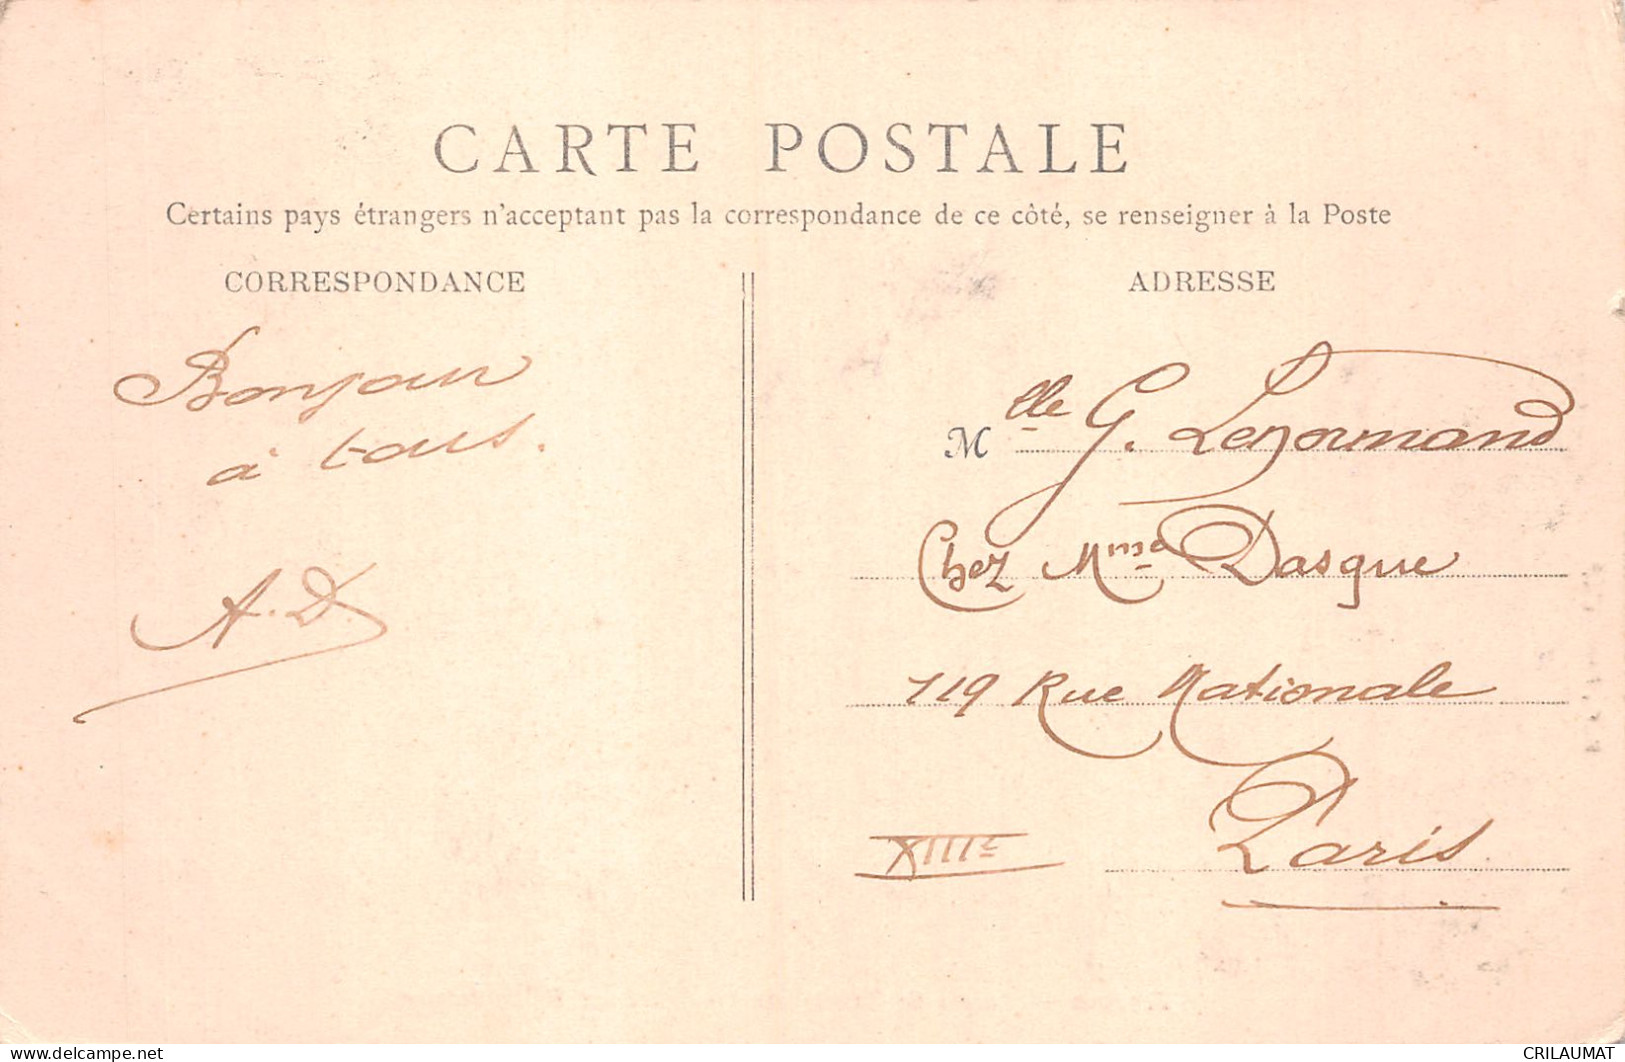 CARTE POSTALE
Certains pays étrangers n'acceptant pas la correspondance de ce côté, se renseigner à la Poste
CORRESPONDANCE
Bonjour
à tous.
A. D.
ADRESSE
Mlle G. Lenormand
Chez Mme Dasque
119 Rue Nationale
Paris
XIIIe
CRILAUMAT